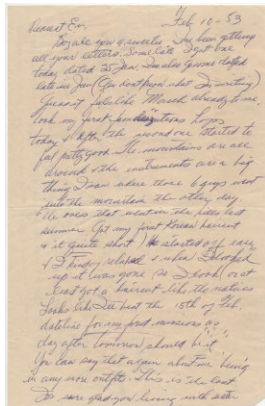 Feb 10 - 53
Dearest Ev,
Boy are you a sweetie. I've been getting
all your letters. Some late I got one
today dated 25 Jan. I've also gotten dated
late in Jan (You don't know what I'm writing)
Guess it feels like March already to me.
took my first two hops
today & after the second one started to
feel pretty good. The mountains are all
around & the instruments are a big
thing I saw where those 6 guys went
into the mountain the other day.
The ones that went in the hills last
summer. Got my first Korean haircut
& it quite short! He started off easy
& I kinda relaxed & when I looked
up it was gone so I look out
I got a haircut like the natives
Looks like I'll beat the 15th of Feb.
dateline for my first missions by
day after tomorrow should be it.
You can say that again about me being
in any more outfits. This is the last
I'm sure glad you living with